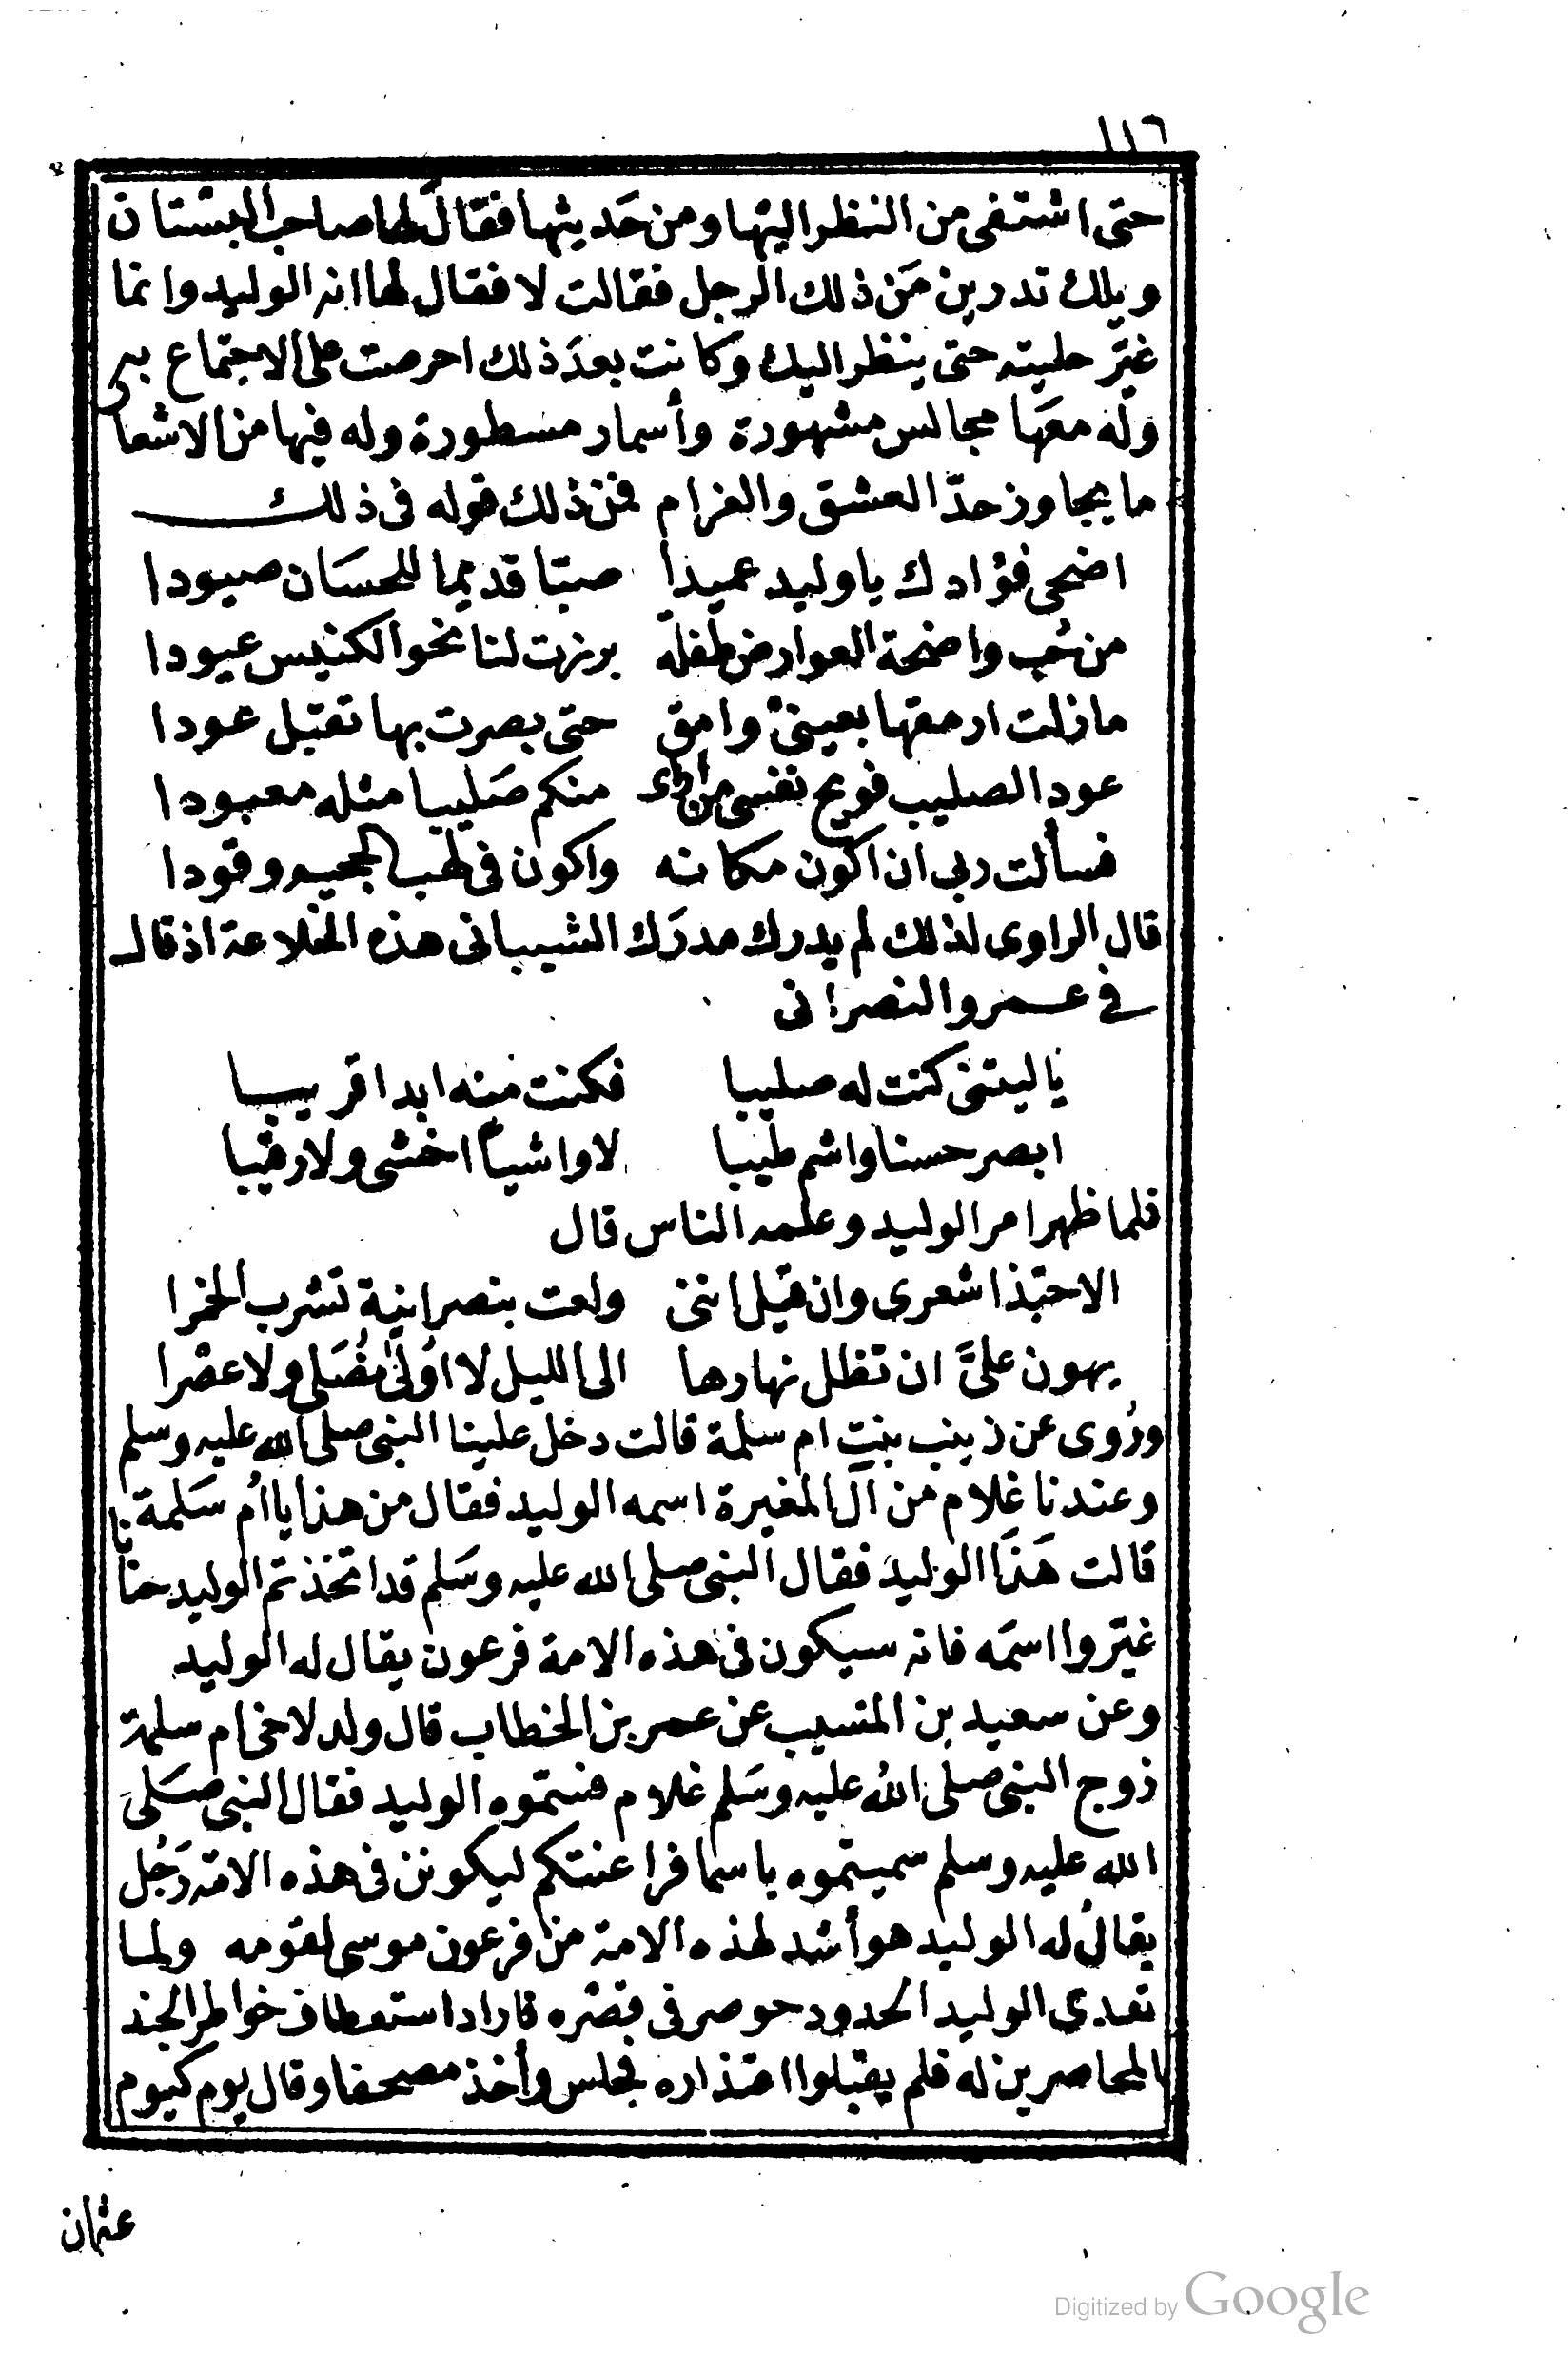 ١١٦
حتى اشتفى من النظر اليها ومن حَديثها فقال لها صاحب البستان
ويلك تدرين مَن ذلك الرجل فقالت لا فقال لها انه الوليد وانما
غيّر حليته حتى ينظر اليك وكانت بعدَ ذلك احرصت على الاجتماع به
وله معَها مجالس مشهورة وأسمار مسطورة وله فيها من الاشعار
ما يجاوز حدّ العشق والغرام فمن ذلك قوله فى ذلك
اضحى فؤادك يا وليد عميدا صبّا قديما للحسَان صيودا
من حُب واضحة العوارض طفلة برزت لنا نحو الكنيس عيودا
ما زلت ارمقها بعينيْ وامق حتى بصرت بها تقبل عودا
عود الصليب فويح نفسى من رأى منكم صَليبا مثله معبودا
فسألت ربى ان اكون مكانه واكون فى لهب الجحيم وقودا
قال الراوى لذلك لم يدرك مدرَك الشيبانى هذه الخلاعة اذ قال
في عمرو النصرانى
يا ليتنى كنت له صليبا فكنت منه ابدا قريبا
ابصر حسنا واشم طيبا لا واشيا اخشى ولا رقيبا
فلما ظهر امر الوليد وعلمه الناس قال
الا حبّذا شعرى وان قيل اننى ولعت بنصرانية تشرب الخمرا
يهون علىَّ ان تظل نهارها الى الليل لا اولى تُصَلى ولا عصْرا
ورُوى عن زينب بنت ام سلمة قالت دخل علينا النبى صلى الله عليه وسلم
وعندنا غلام من آل المغيرة اسمه الوليد فقال من هذا يا اُم سَلمة
قالت هَذا الوليد فقال النبى صلى الله عليه وسَلم قد اتخذتم الوليد حنانا
غيّروا اسمَه فانه سيكون فى هذه الامة فرعون يقال له الوليد
وعن سعيد بن المسيب عن عمر بن الخطاب قال ولد لاخى ام سلمة
زوج النبى صلى اللهُ عليه وسَلم غلام فسمّوه الوليد فقال النبى صَلى
الله عليه وسلم سميتموه باسما فراعنتكم ليكونن فى هذه الامّة رَجُل
يقالُ له الوليد هو أشد لهذه الامة من فرعون موسى لقومه ولما
تعدى الوليد الحدود حوصر فى قصْره فاراد استعطاف خواطر الجند
المحاصرين له فلم يقبلوا اعتذاره فجلس وأخذ مصحفا وقال يوم كيوم
عثمان
Digitized by Google